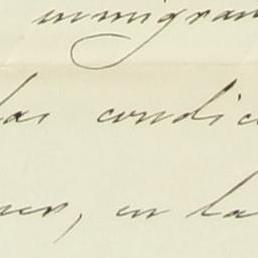 inmigran
las condic
en la